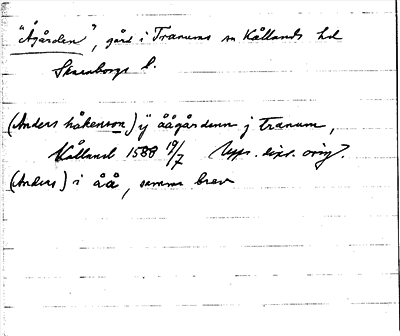 "Ågården", gård i Tranums sn Kållands hd
Skaraborgs l.
(Anders håkenson) ÿ åågårdenn j tranum,
Kålland 1588 19/7 Upps. dipl. orig.
(Anders) i åå, samma brev